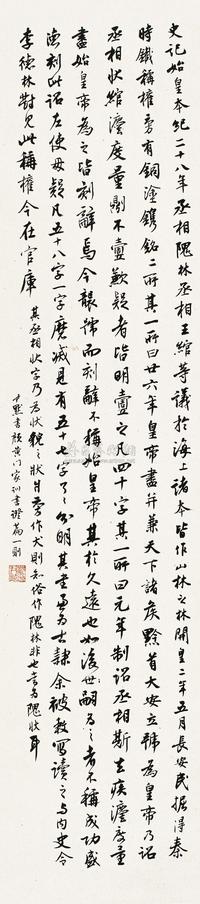 史記始皇本紀二十八年丞相隗林丞相王綰等議於海上諸本皆作山林之林開皇二年五月長安民掘得秦
時鐵稱權旁有銅塗鐫銘二所其一所曰廿六年皇帝盡并兼天下諸侯黔首大安立號為皇帝乃詔
丞相狀綰灋度量則不壹歉疑者皆明壹之凡四十字其一所曰元年制詔丞相斯去疾灋度量
盡始皇帝為之皆刻辭焉今襲號而刻辭不稱始皇帝其於久遠也如後世嗣為之者不稱成功盛
德刻此詔左使毋疑凡五十八字一字磨滅見有五十七字了了分明其書兼為古隸余被敕寫讀之與內史令
李德林對見此稱權今在官庫其丞相狀字乃為狀貌之狀爿旁作犬則知俗作隗林非也當為隗狀耳
尹默書顏黃門家訓書證篇一則